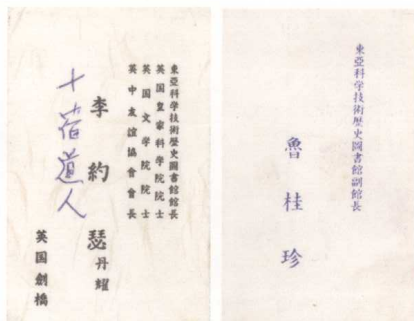 東亞科学技術歷史圖書館館長
英国皇家科学院院士
英国文学院院士
英中友誼協會會長
李約瑟 丹耀
十宿道人
英国劍橋
東亞科学技術歷史圖書館副館長
魯桂珍